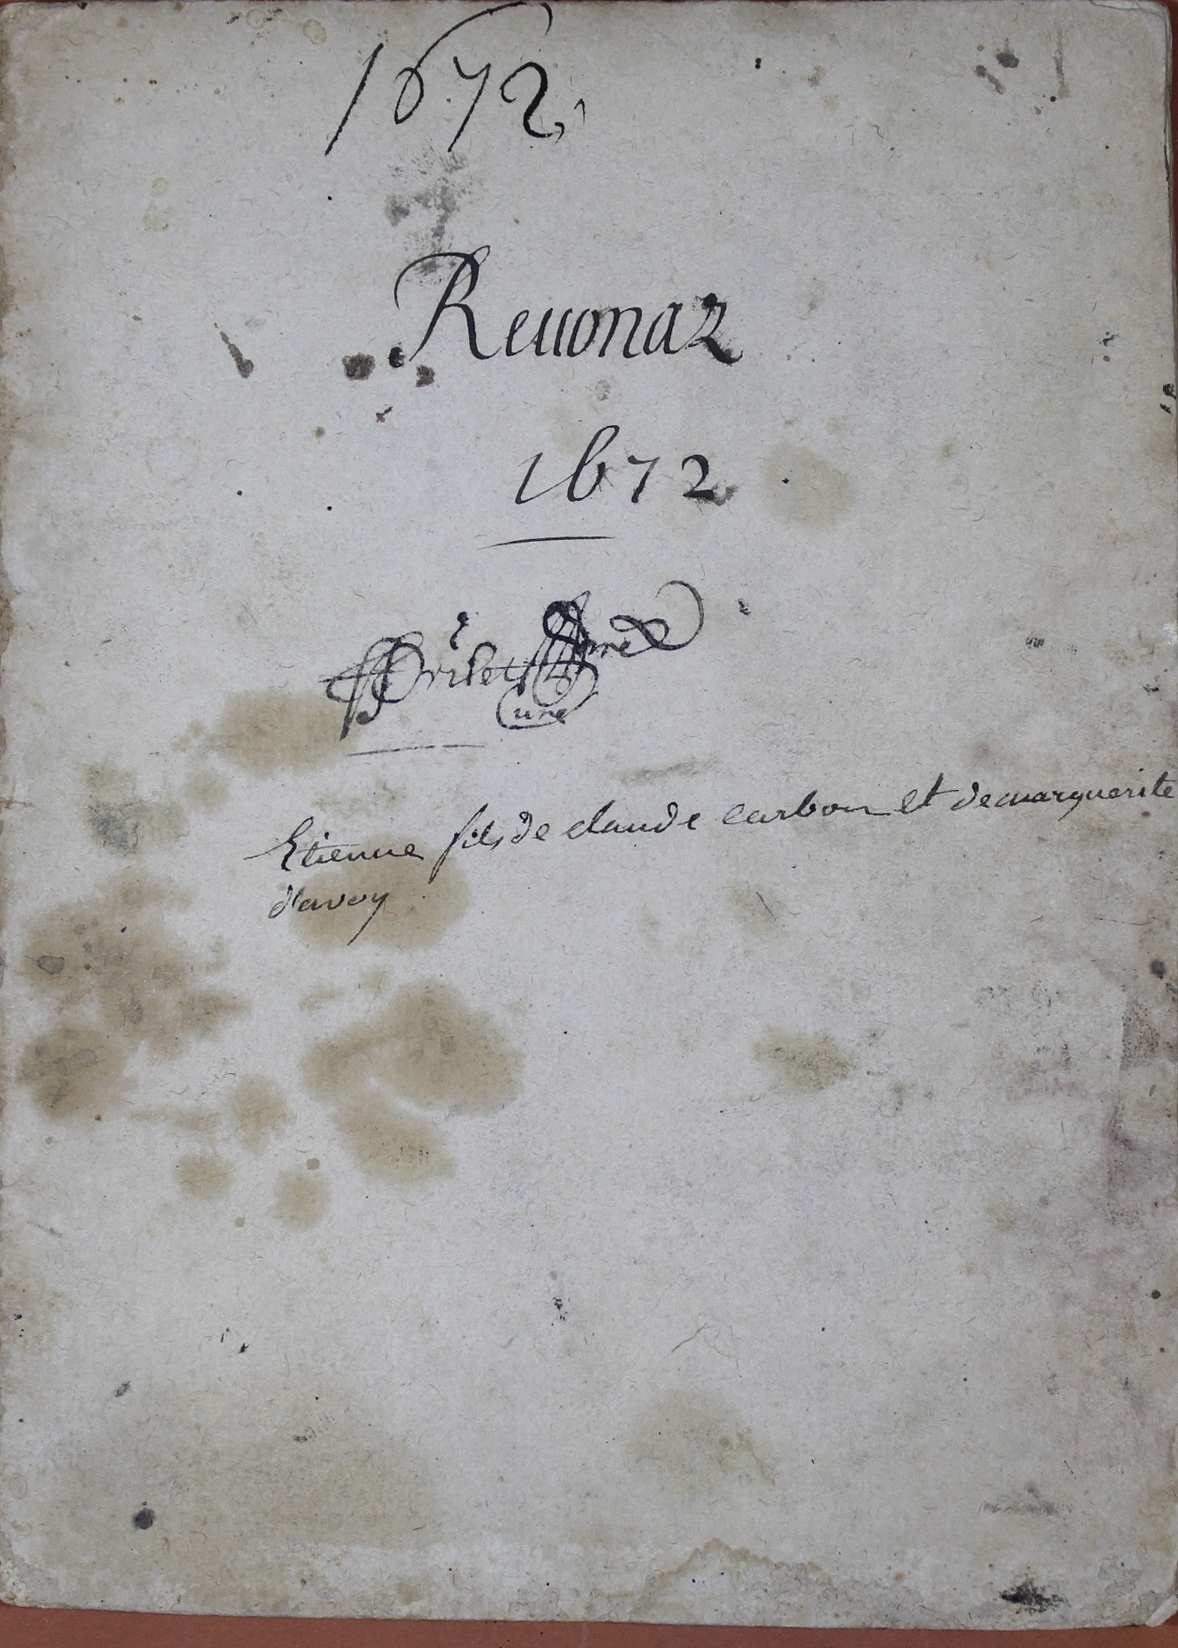 1672
Reuonaz
1672
Curé
Etienne fils de claude carbon et de marguerite
d'avoy